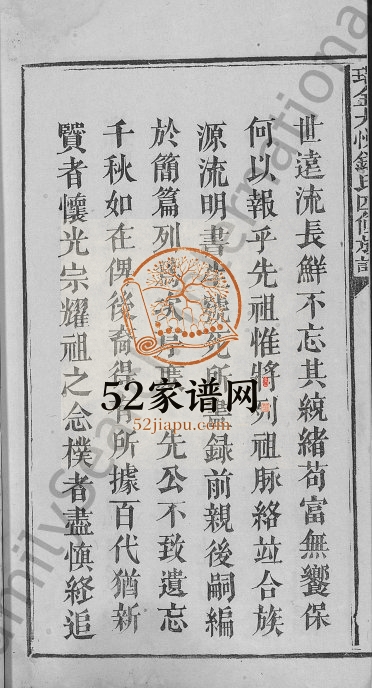 瑞金九修鍾氏四修族譜
世遠流長鮮不忘其統緒苟富無饗保
何以報乎先祖惟將列祖脉絡竝合族
源流明書錄前親後嗣編
於簡篇列先公不致遺忘
千秋如在俾後裔得有所據百代猶新
賢者懷光宗耀祖之念樸者盡慎終追
52家谱网
52jiapu.com